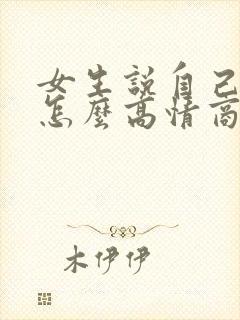 女生說自己
怎麼高情商
木伊伊